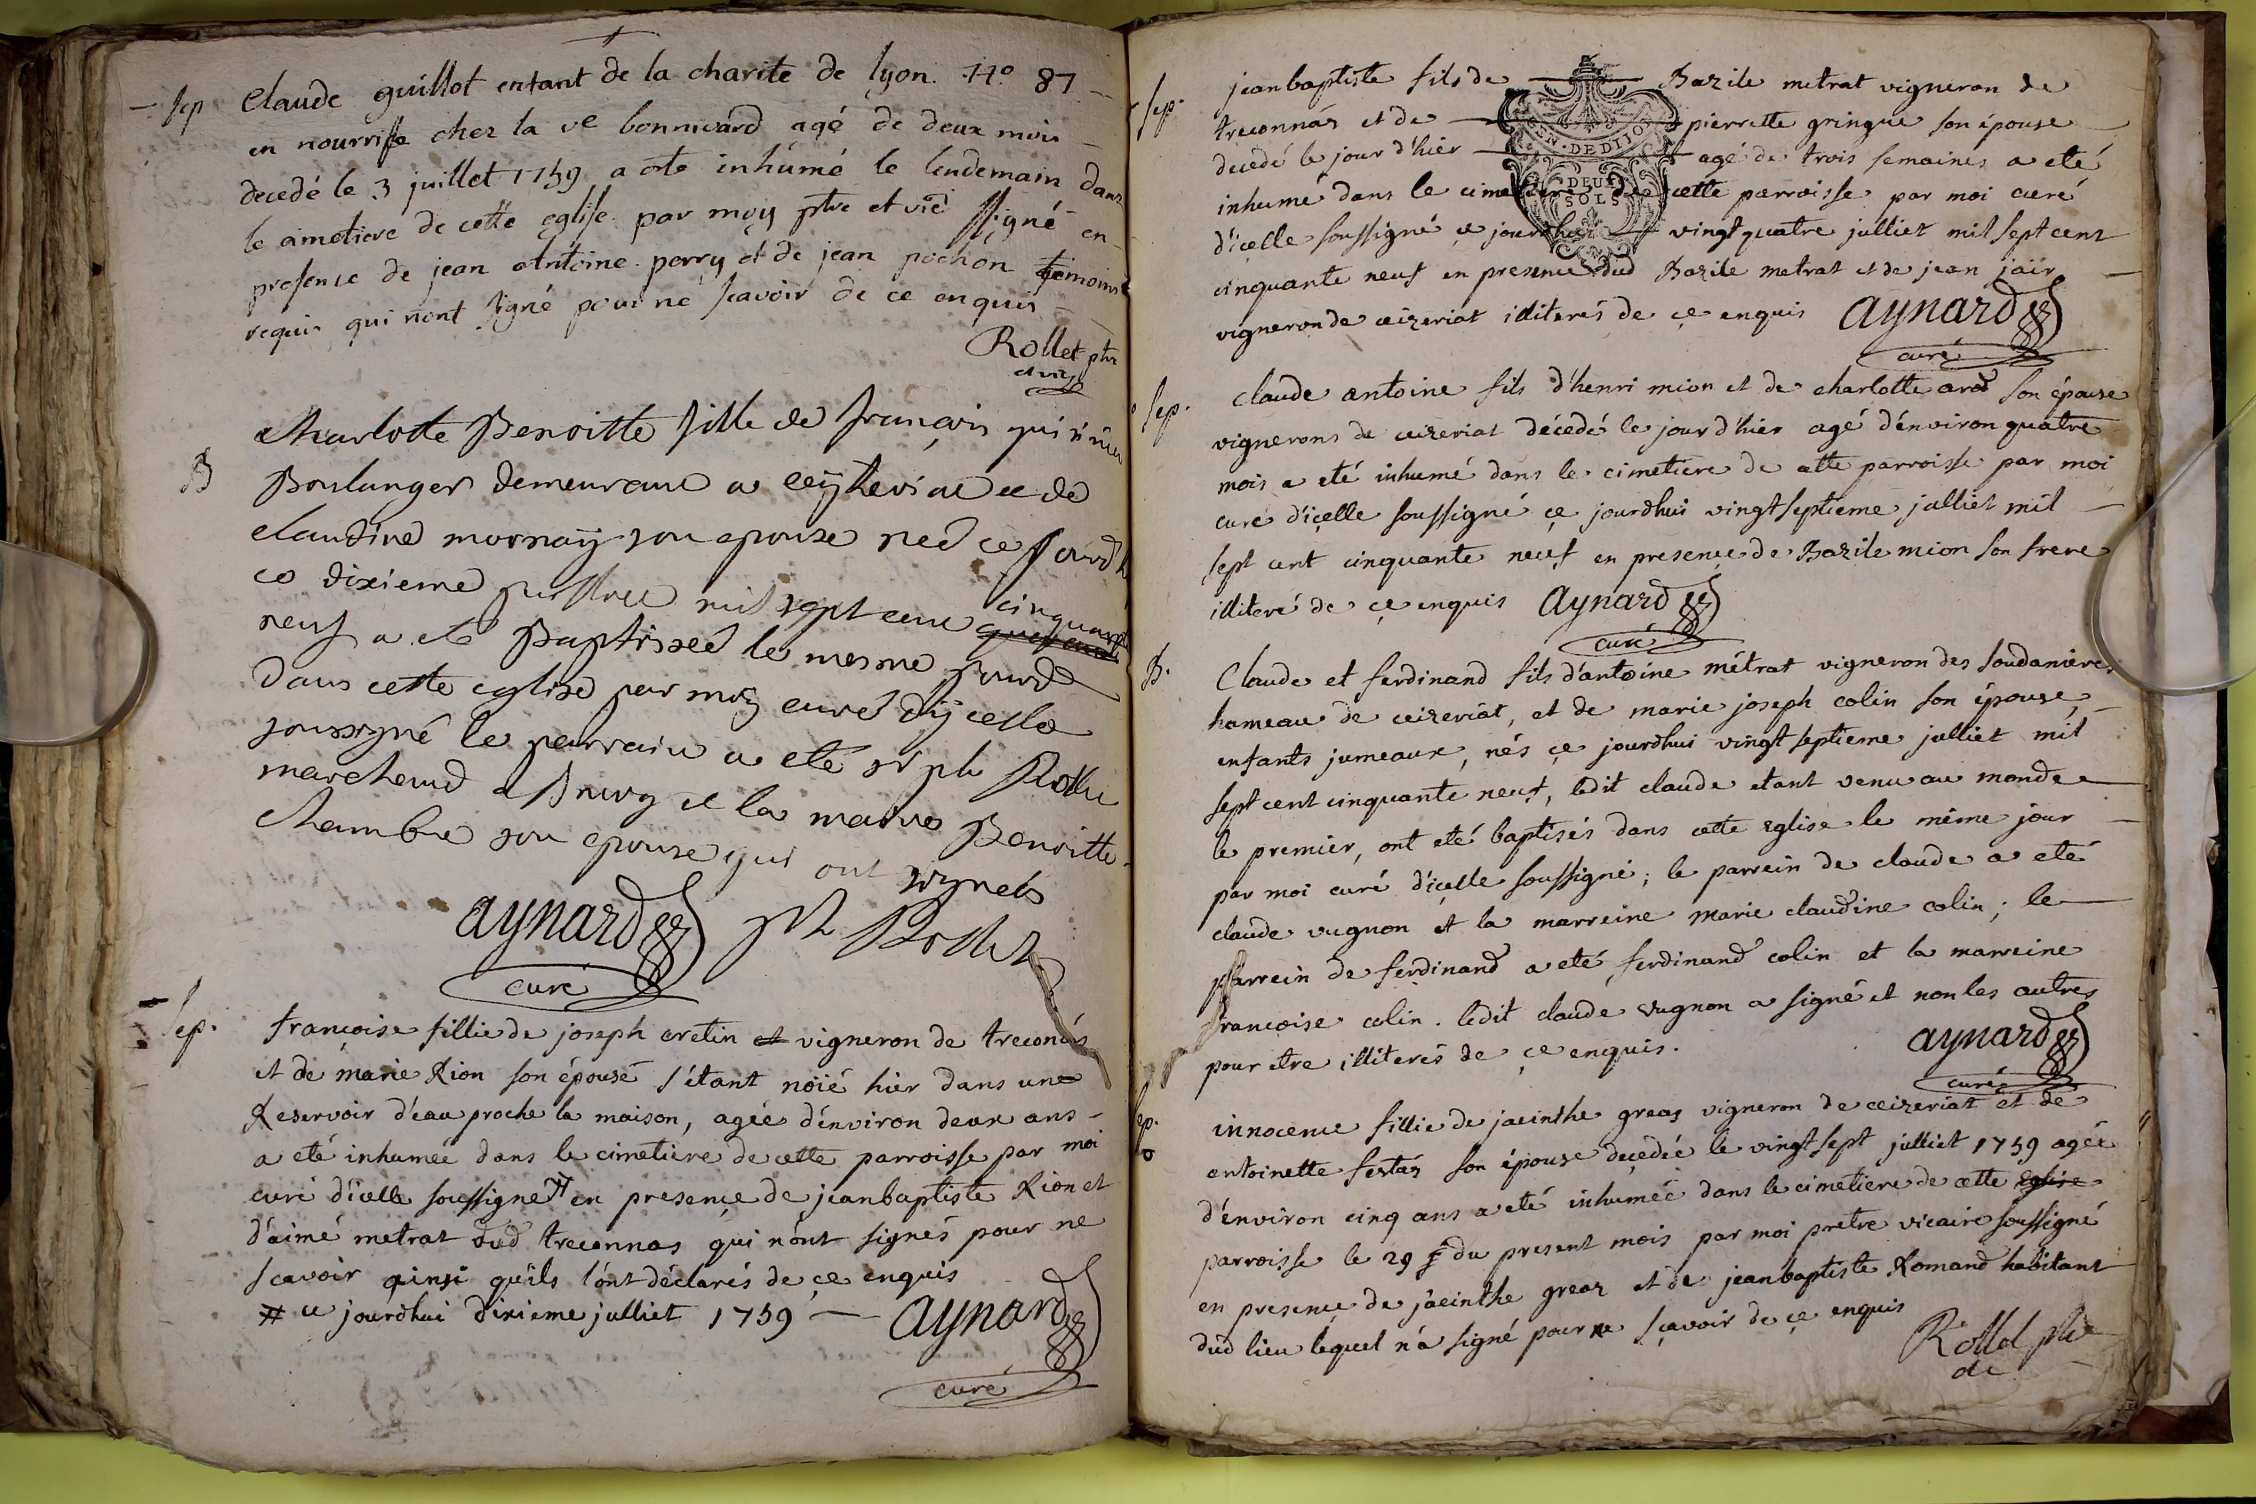 Sep Claude guillot enfant de la charite de lyon. N.º 87
en nourrisse chez la ve bonnivard agé de deux mois
decedé le 3 juillet 1759 a ete inhumé le lendemain dans
le cimetiere de cette eglise par moy ptre et vic signé en
presence de jean Antoine perry et de jean pochon temoins
requis qui nont signé pour ne scavoir de ce enquis
Rollet ptr
et vic
B Charlotte Benoitte fille de françois
Boulanger demeurant a et de
claudine mornay son epouse née ce jourdh
ce dixieme juillet mil sept cent cinquante
neuf a eté Baptisée le mesme jourd
dans cette eglise par moy curé dycelle
soussigné le parrain a eté
marchand a Bourg et la marine Benoitte
Chambre son epouse qui ont signés
aynard
curé
Sep. francoise fillie de joseph cretin et vigneron de treconas
et de marie Rion son épouse s'étant noiée hier dans une
Reservoir d'eau proche la maison, agée d'environ deux ans
a eté inhumée dans le cimetiere de cette parroisse par moi
curé d'icelle soussigné # en presençe de jeanbaptiste Rion et
d'aimé metrat dud treconnas qui n'ont signés pour ne
scavoir ainsi qu'ils l'ont déclarés de çe enquis
# ce jourdhui dixieme julliet 1759 — aynard
curé
Sep. jeanbaptiste fils de Bazile metrat vigneron de
GEN. DE DIJON
DEUX
SOLS
treconnas et de pierrette gringue son épouse
decedé le jour d'hier agé de trois semaines a eté
inhumé dans le cimetiere de cette parroisse par moi curé
d'içelle soussigné çe jourdhui vingt quatre julliet mil sept cent
cinquante neuf en presence dud Bazile metrat et de jean jair
vigneron de ceizeriat illiterés de çe enquis aynard
curé
Sep. claude antoine fils d'henri mion et de charlotte son épouse
vignerons de ceizeriat décédé le jour d'hier agé d'environ quatre
mois a eté inhumé dans le cimetiere de cette parroisse par moi
curé d'içelle soussigné çe jourdhui vingt septieme julliet mil
sept cent cinquante neuf en presençe de Bazile mion son frere
illiteré de çe enquis aynard
curé
B. Claude et ferdinand fils d'antoine métrat vigneron des soudanieres
hameau de ceizeriat, et de marie joseph colin son épouse,
enfants jumeaux, nés çe jourdhui vingt septieme julliet mil
sept cent cinquante neuf, ledit claude etant venu au monde
le premier, ont eté baptisés dans cette eglise le même jour
par moi curé d'içelle soussigné; le parrein de claude a eté
claude vugnon et la marreine marie claudine colin; le
parrein de ferdinand a eté ferdinand colin et la marreine
francoise colin. ledit claude vugnon a signé et non les autres
pour etre illiterés de çe enquis.
aynard
curé
Sep. innocence fillie de jacinthe greas vigneron de ceizeriat et de
antoinette festas son épouse deçedée le vingt sept julliet 1759 agée
d'environ cinq ans a eté inhumée dans le cimetiere de cette eglise
parroisse le 29 du present mois par moi pretre vicaire soussigné
en presençe de jacinthe greaz et de jeanbaptiste Romand habitant
dud lieu lequel n'a signé pour ne sçavoir de çe enquis
Rollet